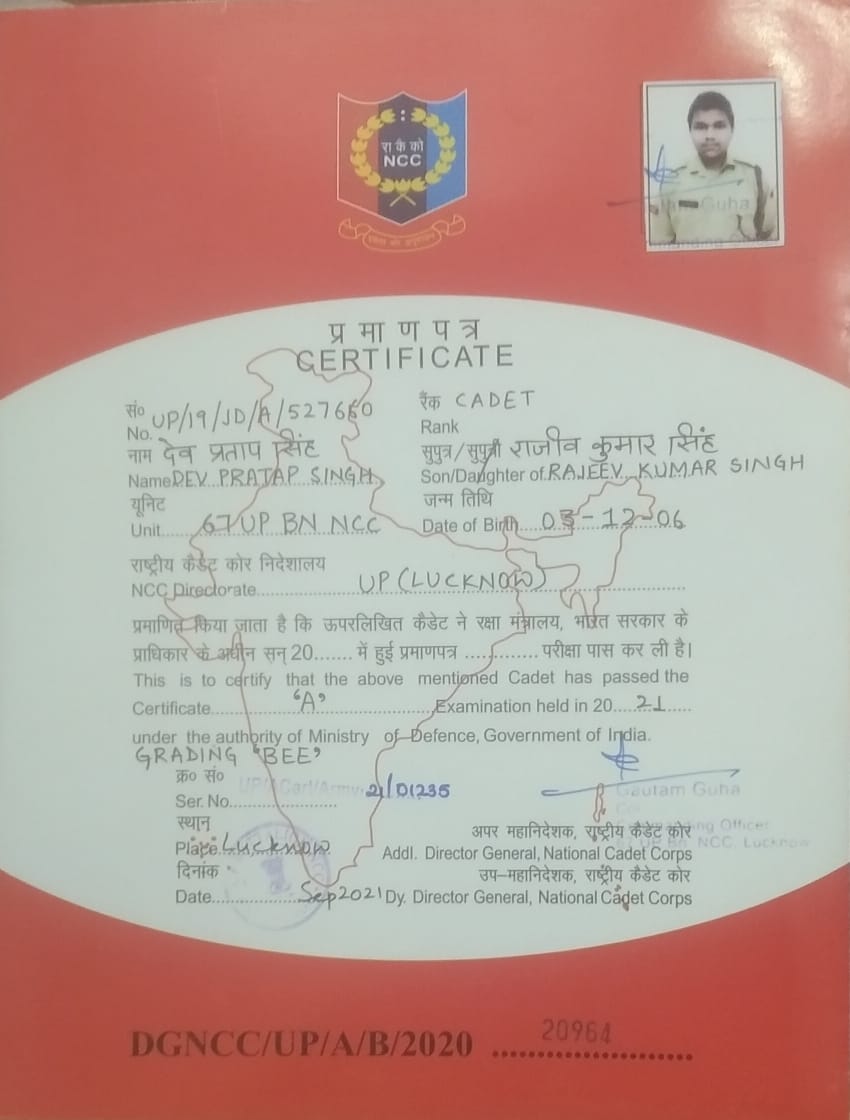 रा कै को
NCC
एकता और अनुशासन
Guha
प्रमाणपत्र
CERTIFICATE
सं० UP/19/JD/A/527660
No.
रैंक CADET
Rank
नाम देव प्रताप सिंह
Name DEV PRATAP SINGH
सुपुत्र/सुपुत्री राजीव कुमार सिंह
Son/Daughter of. RAJEEV KUMAR SINGH
यूनिट
Unit...... 67 UP BN NCC
जन्म तिथि
Date of Birth.... 03-12-06
राष्ट्रीय कैडेट कोर निदेशालय
NCC Directorate................ UP (LUCKNOW) ................
प्रमाणित किया जाता है कि ऊपरलिखित कैडेट ने रक्षा मंत्रालय, भारत सरकार के
प्राधिकार के अधीन सन् 20....... में हुई प्रमाणपत्र ............. परीक्षा पास कर ली है।
This is to certify that the above mentioned Cadet has passed the
Certificate.............. 'A' .................. Examination held in 20.... 21 .....
under the authority of Ministry of Defence, Government of India.
GRADING 'BEE'
क्र० सं०
Ser. No.................... UP/ACert/Army 21/01235
Gautam Guha
Col
Commanding Officer
67 UP Bn. NCC, Lucknow
स्थान
Place Lucknow
अपर महानिदेशक, राष्ट्रीय कैडेट कोर
Addl. Director General, National Cadet Corps
दिनांक
Date.................. Sep 2021
उप-महानिदेशक, राष्ट्रीय कैडेट कोर
Dy. Director General, National Cadet Corps
DGNCC/UP/A/B/2020 .................. 20964